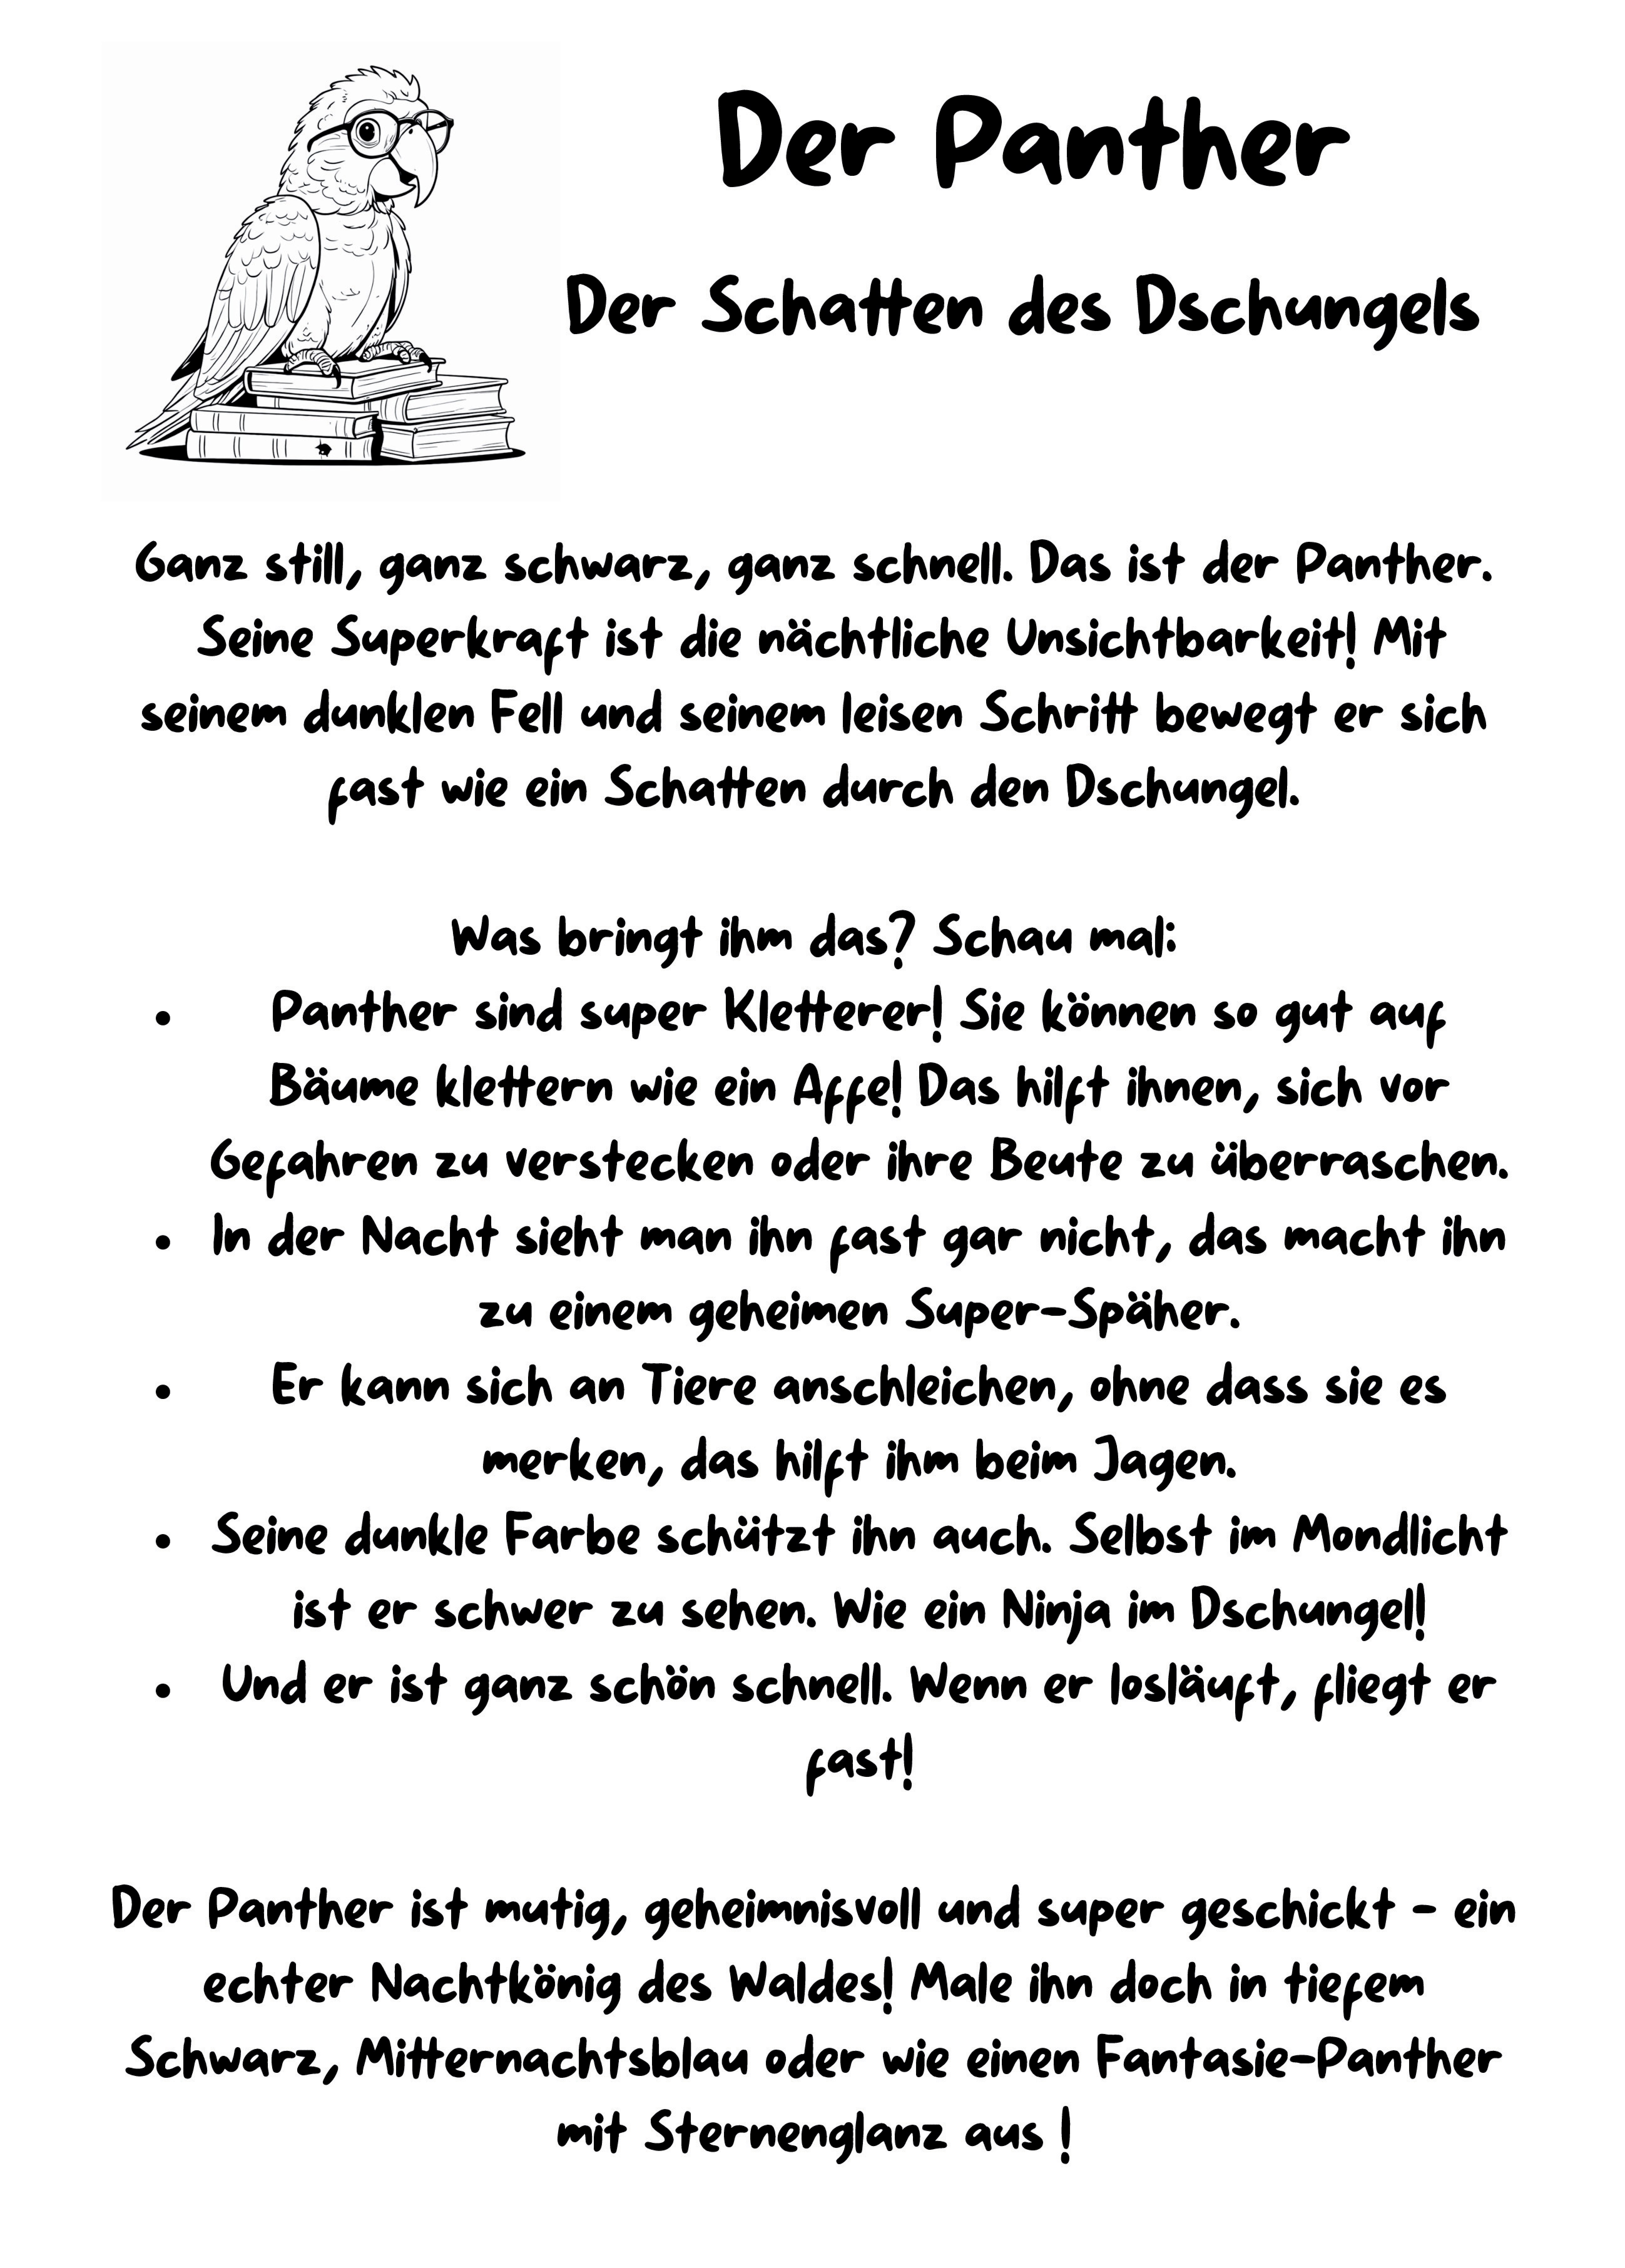 Der Panther
Der Schatten des Dschungels
Ganz still, ganz schwarz, ganz schnell. Das ist der Panther.
Seine Superkraft ist die nächtliche Unsichtbarkeit! Mit
seinem dunklen Fell und seinem leisen Schritt bewegt er sich
fast wie ein Schatten durch den Dschungel.
Was bringt ihm das? Schau mal:
• Panther sind super Kletterer! Sie können so gut auf
Bäume klettern wie ein Affe! Das hilft ihnen, sich vor
Gefahren zu verstecken oder ihre Beute zu überraschen.
• In der Nacht sieht man ihn fast gar nicht, das macht ihn
zu einem geheimen Super-Späher.
• Er kann sich an Tiere anschleichen, ohne dass sie es
merken, das hilft ihm beim Jagen.
• Seine dunkle Farbe schützt ihn auch. Selbst im Mondlicht
ist er schwer zu sehen. Wie ein Ninja im Dschungel!
• Und er ist ganz schön schnell. Wenn er losläuft, fliegt er
fast!
Der Panther ist mutig, geheimnisvoll und super geschickt - ein
echter Nachtkönig des Waldes! Male ihn doch in tiefem
Schwarz, Mitternachtsblau oder wie einen Fantasie-Panther
mit Sternenglanz aus !